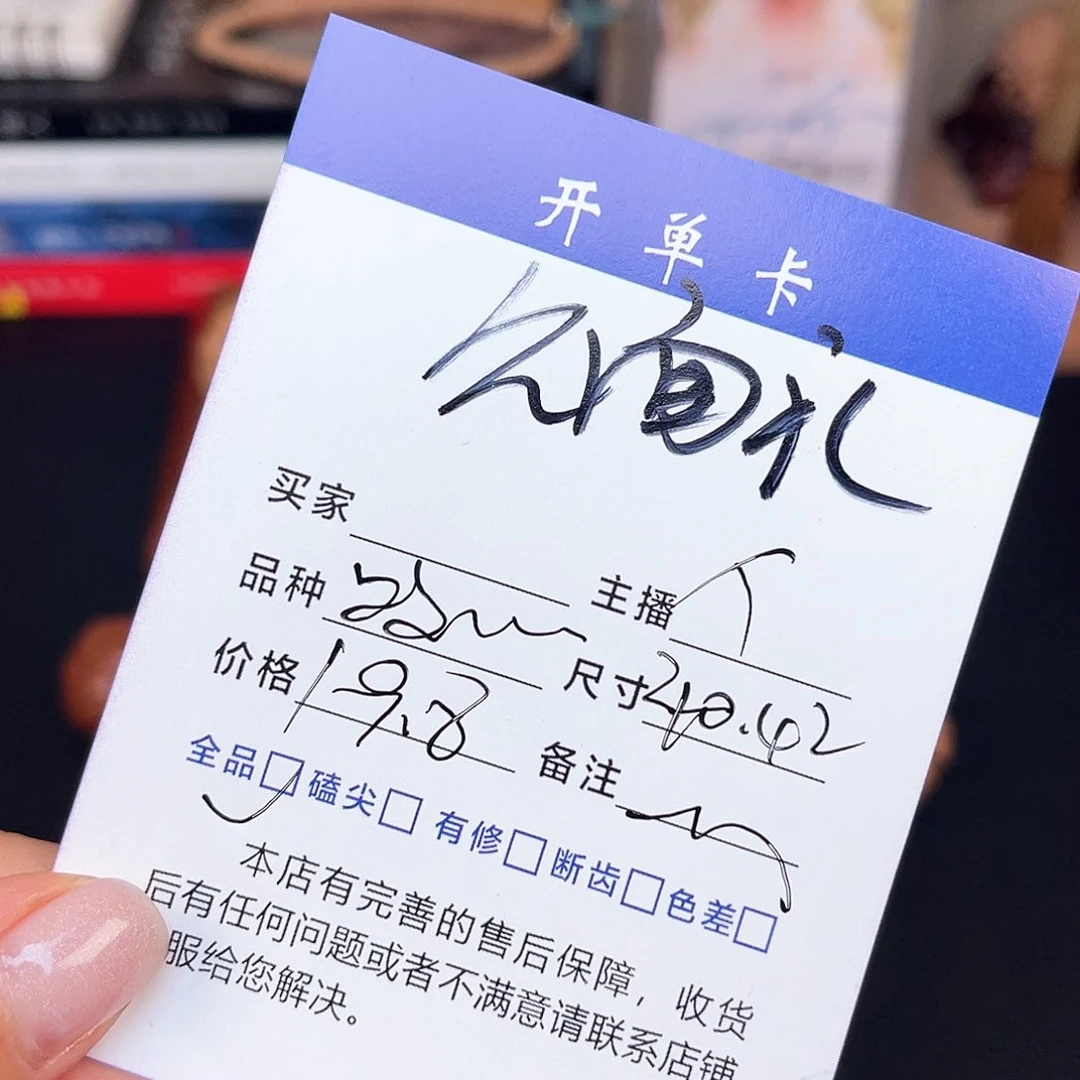 开单卡
买家
品种 主播
价格 19.8 尺寸 40.42
备注
全品□磕尖□有修□断齿□色差□
本店有完善的售后保障，收货
后有任何问题或者不满意请联系店铺
服给您解决。